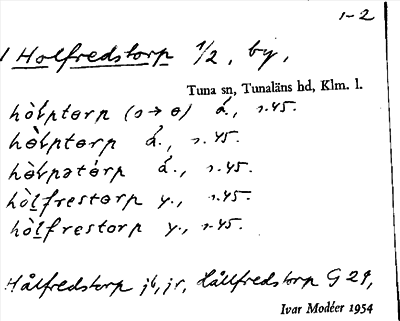 1-2
1 Holfredstorp 1/2, by,
Tuna sn, Tunaläns hd, Klm. l.
hòłptɵrp (ɔ→ɵ) å., s.45.
hɵ̀łptɵrp å., s.45.
hɵ̀łpətɵ́rp å., s.45.
hòlfrestɵrp y., s.45.
hòlfrestɵrp y., s.45.
Hålfredstorp jb, jr, Hållfredstorp G 29,
Ivar Modéer 1954